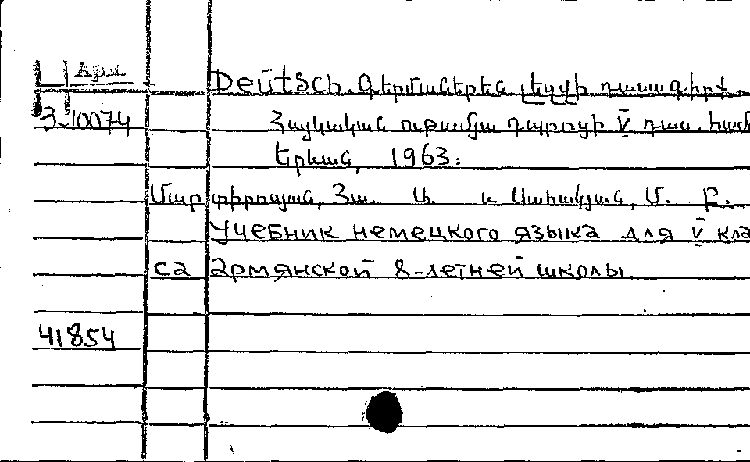 Арм
Deutsch. Գերմաներեն լեզվի դասագիրք.
3-10074
Հայկական ութամյա դպրոցի V դաս. համ
Երևան, 1963:
Մարտիրոսյան, Հա. Ա. և Սահակյան, Մ. Բ.
Учебник немецкого языка для V кла
са армянской 8-летней школы.
41854